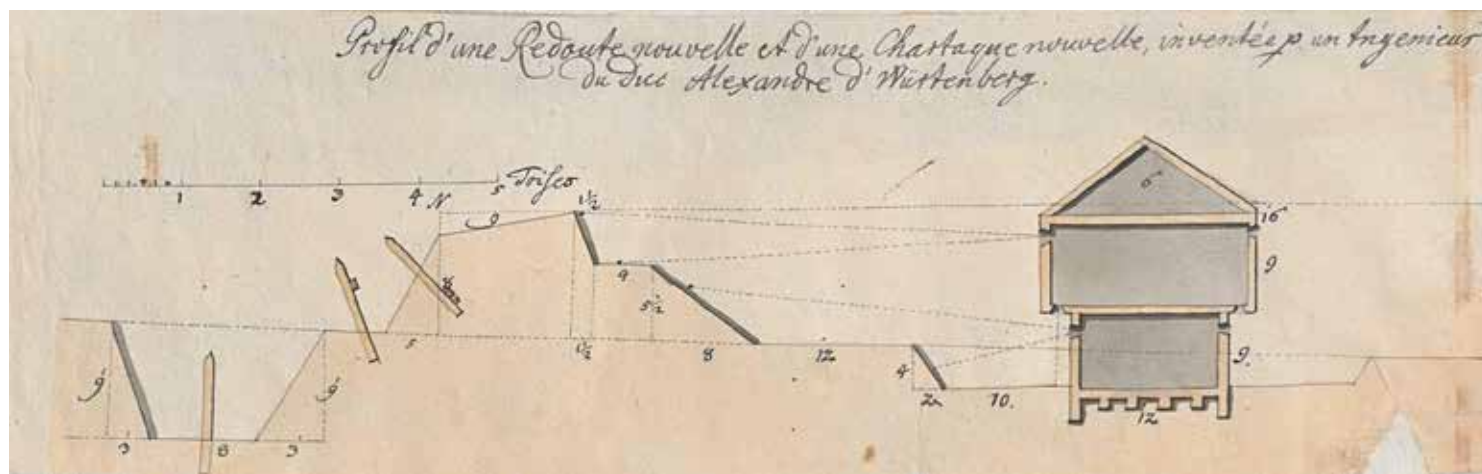 Profil d'une Redoute nouvelle et d'une Chartaque nouvelle, inventée p un Ingenieur
du Duc Alexandre d'Wurtenberg.
1 2 3 4 5 Toises
N
9
1½
6
16
9
9
5½
9
4
5
1½
8
12
9.
9
9
3
6
3
2
10.
12